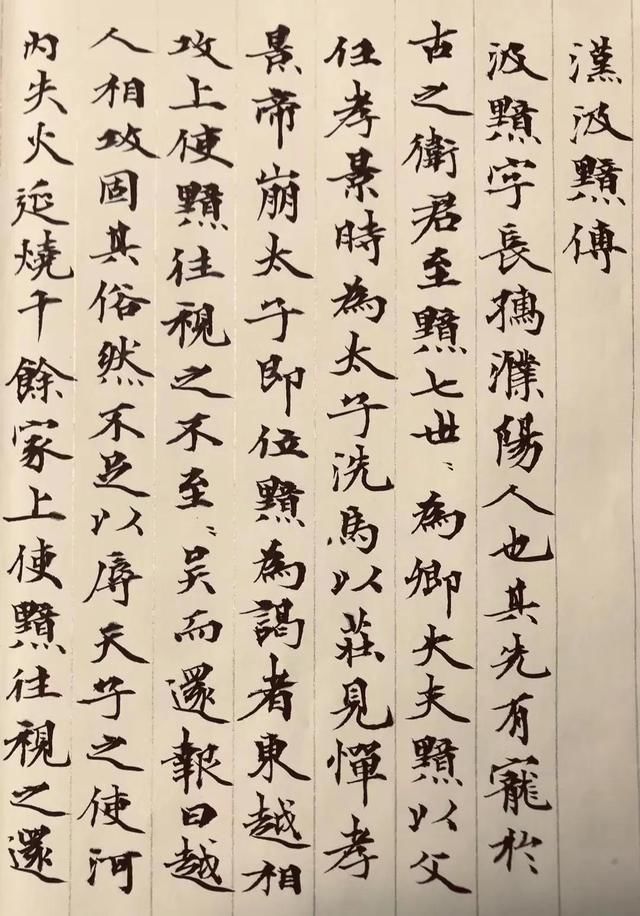 漢汲黯傳
汲黯字長孺濮陽人也其先有寵於
古之衛君至黯七世〻為卿大夫黯以父
任孝景時為太子洗馬以莊見憚孝
景帝崩太子即位黯為謁者東越相
攻上使黯往視之不至〻吳而還報曰越
人相攻固其俗然不足以辱天子之使河
內失火延燒千餘家上使黯往視之還